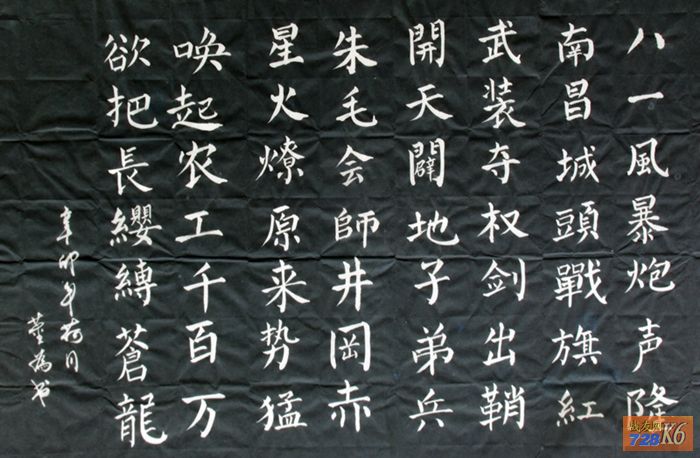 八一風暴炮声隆
南昌城頭戰旗紅
武装夺权剑出鞘
開天闢地子弟兵
朱毛会師井冈赤
星火燎原来势猛
唤起农工千百万
欲把長纓縛蒼龍
辛卯年荷月
K6
728